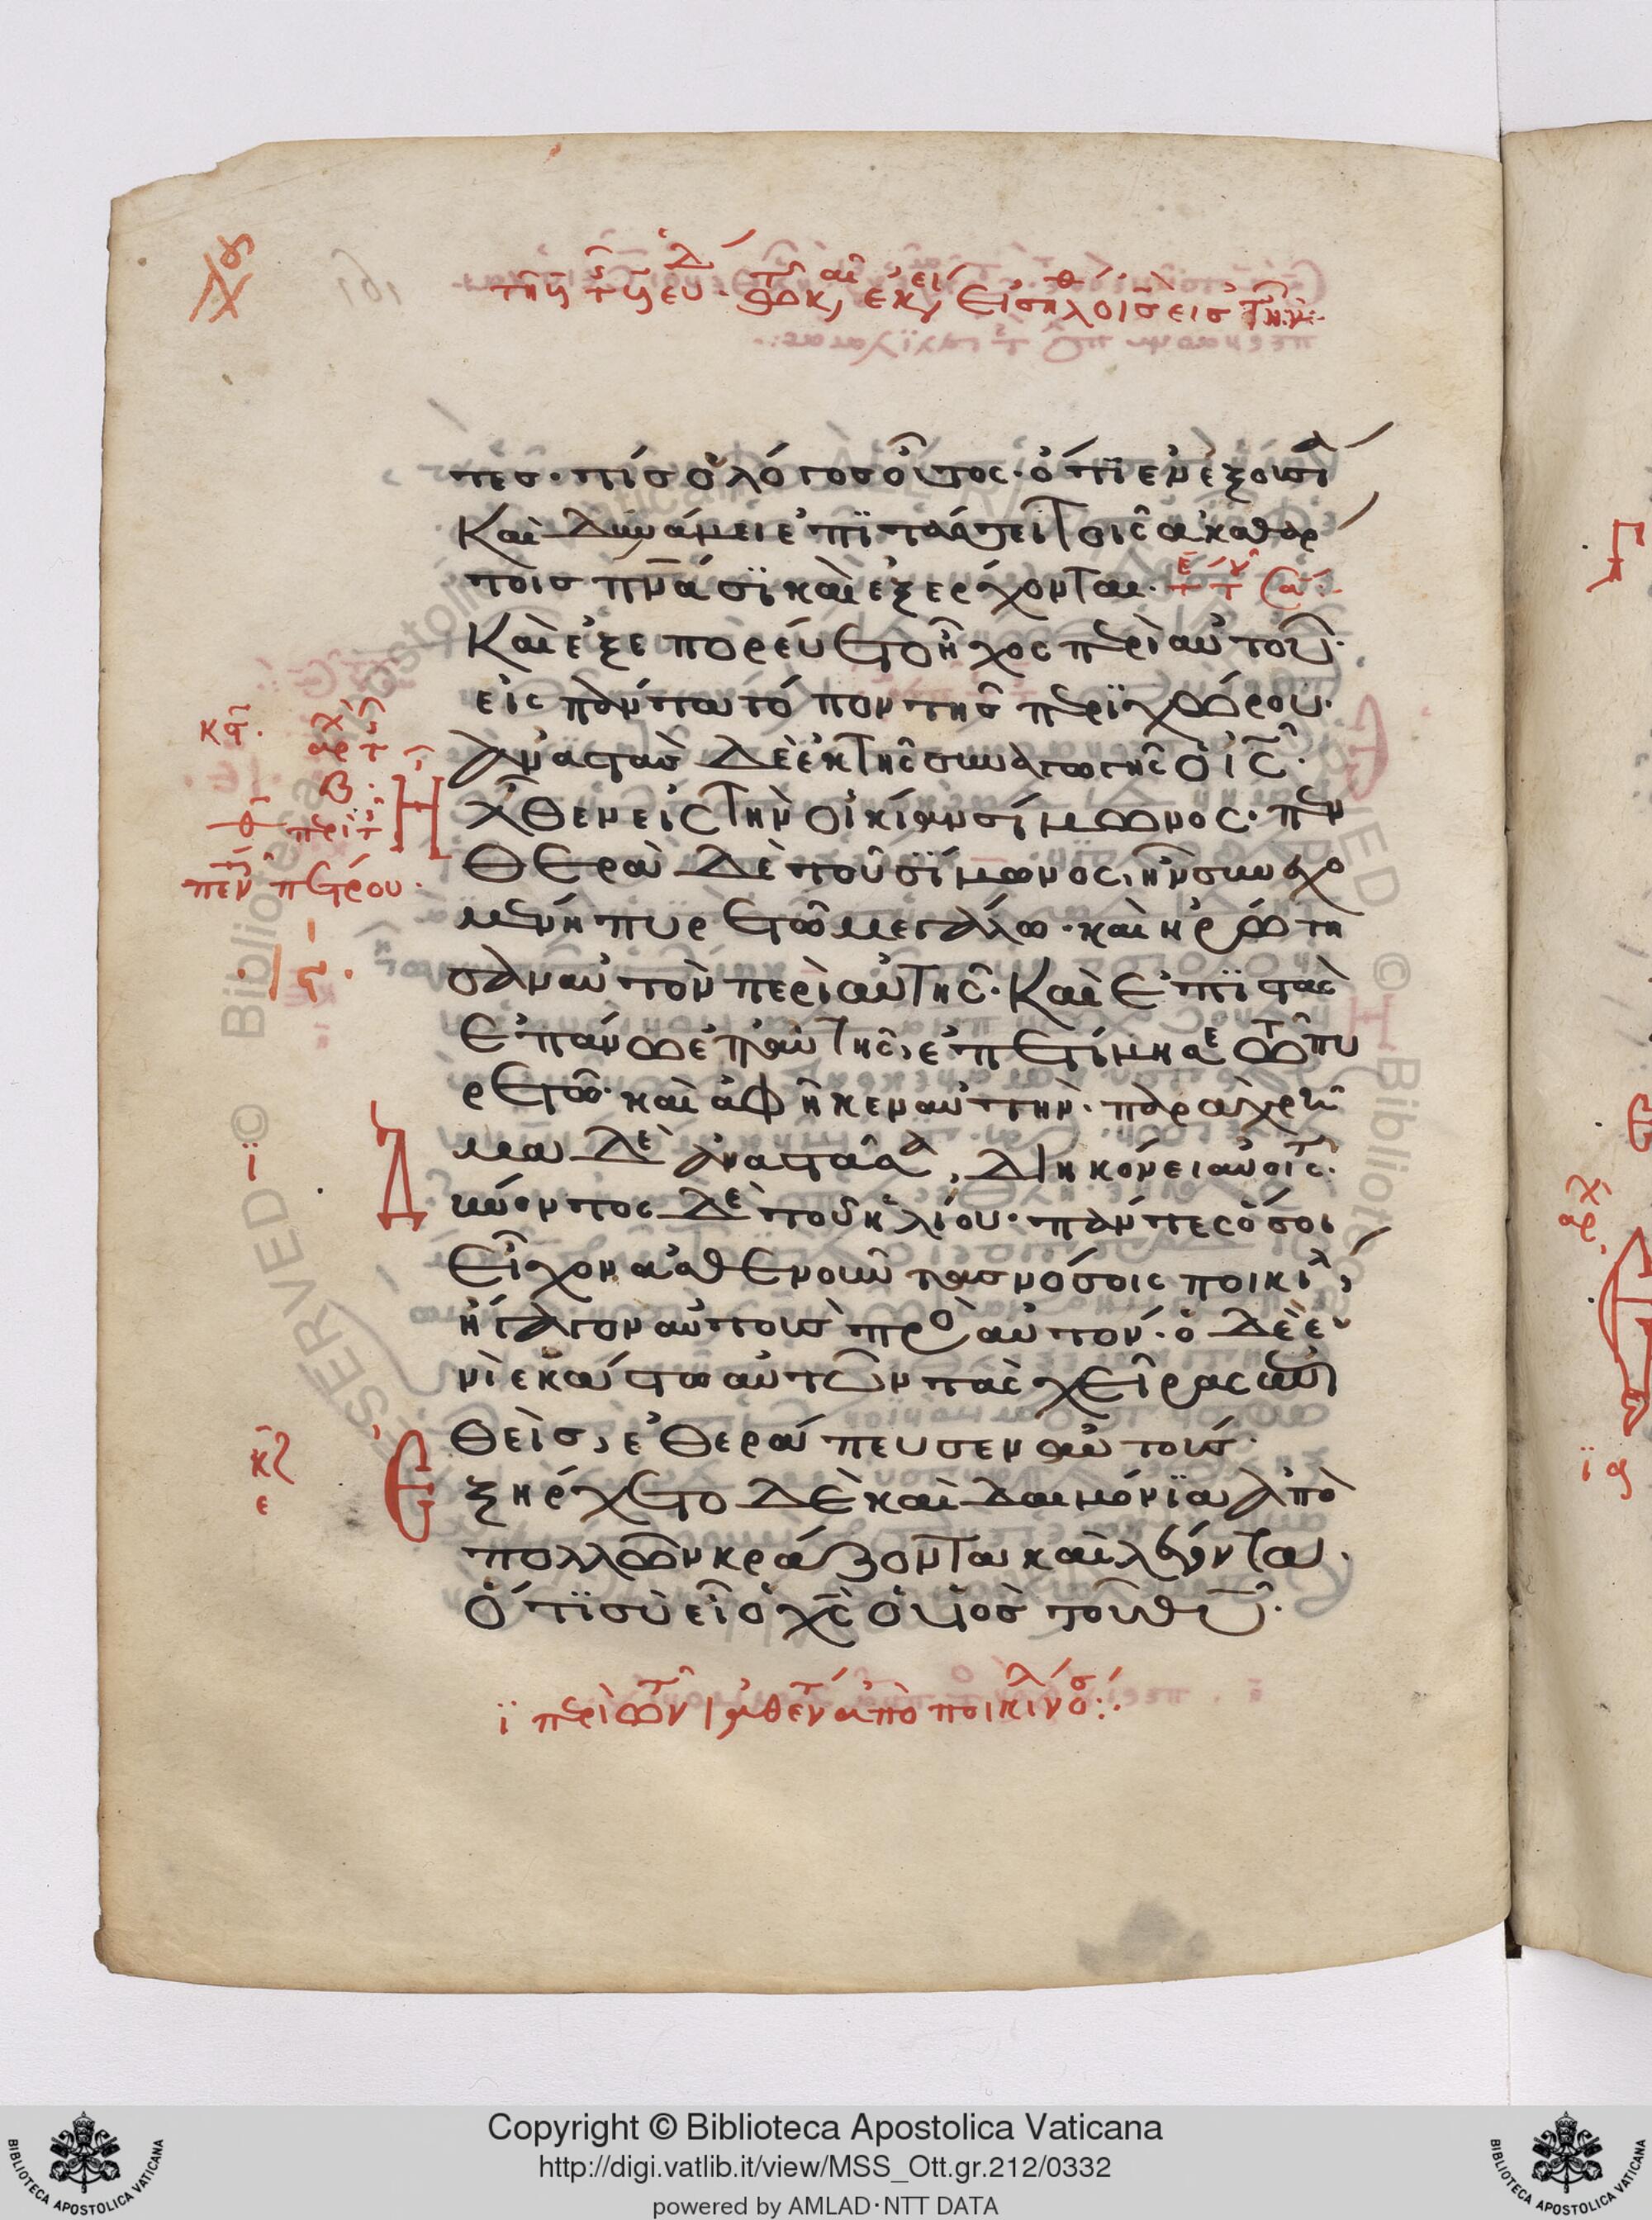 πες· τίς ὁ λόγος οὗτος· ὅτι ἐν ἐξουσία
Καὶ δυνάμει ἐπιτάσσει τοῖς ἀκαθάρ
τοις πν̅άσι καὶ ἐξέρχονται·
Καὶ ἐξεπορεύετο ἦχος περὶ αὐτοῦ·
εἰς πάντα τόπον τῆς περιχώρου·
Ἀναστὰς δὲ ἐκ τῆς συναγωγῆς ὁ ις̅·
Ἦ
λθεν εἰς τὴν οἰκίαν σίμωνος· πεν
θερὰ δὲ τοῦ σίμωνος, ἦν συνεχο
μένη πυρετῶ μεγάλω· καὶ ἠρώτη
σαν αὐτὸν περὶ αὐτῆς· Καὶ ἐπιστὰς
ἐπάνω ἐπ' αὐτῆς, ἐπετίμησε τῶ πυ
ρετῶ· καὶ ἀφῆκεν αὐτήν· παραχρῆ
μα δὲ ἀναστᾶσα, διηκόνει αὐτοῖς·
Δ
ύνοντος δὲ τοῦ ἡλίου· πάντες ὅσοι
Εἶχον ἀσθενοῦντας νόσοις ποικίλ
ἤγαγον αὐτοὺς πρὸ αὐτόν· ὁ δὲ ἑ
νὶ ἑκάστω αὐτῶν τὰς χεῖρας ἐπι
θεὶς, ἐθεράπευσεν αὐτούς·
Ἐ
ξήρχετο δὲ καὶ δαιμόνια ἀπὸ
πολλῶν κράζοντα καὶ λέγοντα·
Ὅτι σὺ εἶ ὁ χς̅ ὁ υἱὸς τοῦ θυ̅·
ϊ περὶ τῶν ἰαθέντ ἀπὸ ποικίλ νόσ
Copyright © Biblioteca Apostolica Vaticana
http://digi.vatlib.it/view/MSS_Ott.gr.212/0332
powered by AMLAD·NTT DATA
BIBLIOTECA APOSTOLICA VATICANA
BIBLIOTECA APOSTOLICA VATICANA